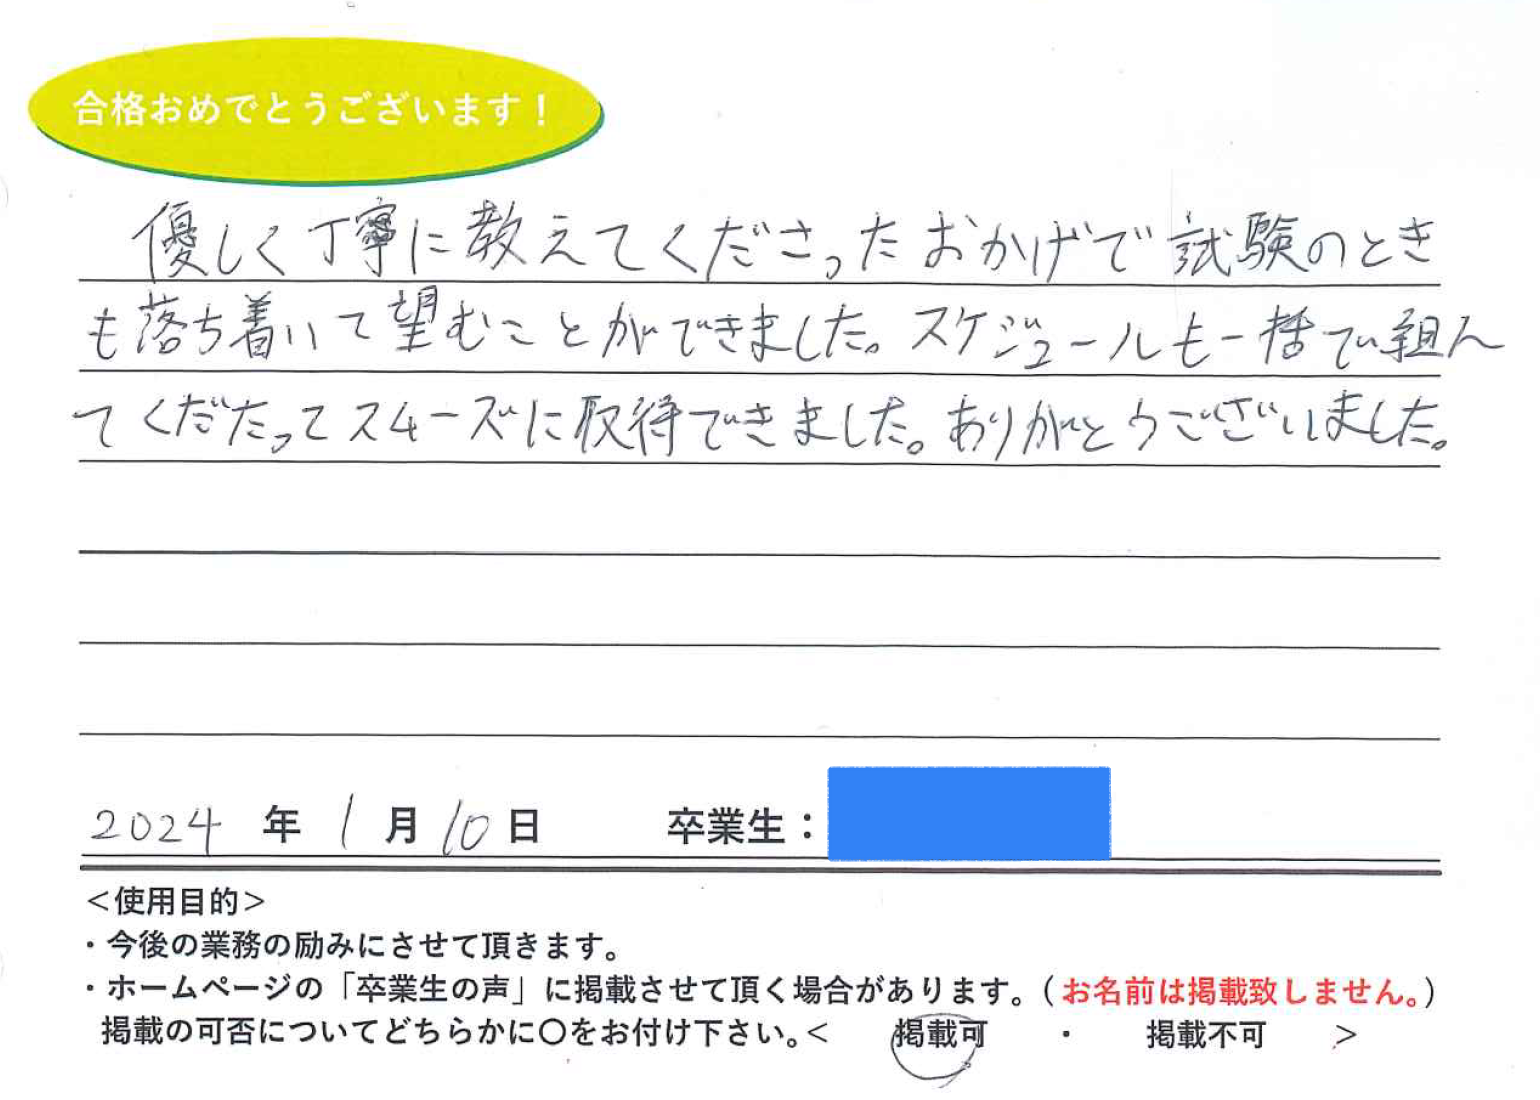 合格おめでとうございます！
優しく丁寧に教えてくださったおかげで試験のとき
も落ち着いて望むことができました。スケジュールも一括で組ん
てくだたってスムーズに取得できました。ありがとうございました。
2024年1月10日 卒業生：
＜使用目的＞
・今後の業務の励みにさせて頂きます。
・ホームページの「卒業生の声」に掲載させて頂く場合があります。（お名前は掲載致しません。）
掲載の可否についてどちらかに〇をお付け下さい。＜ 掲載可 ・ 掲載不可 ＞